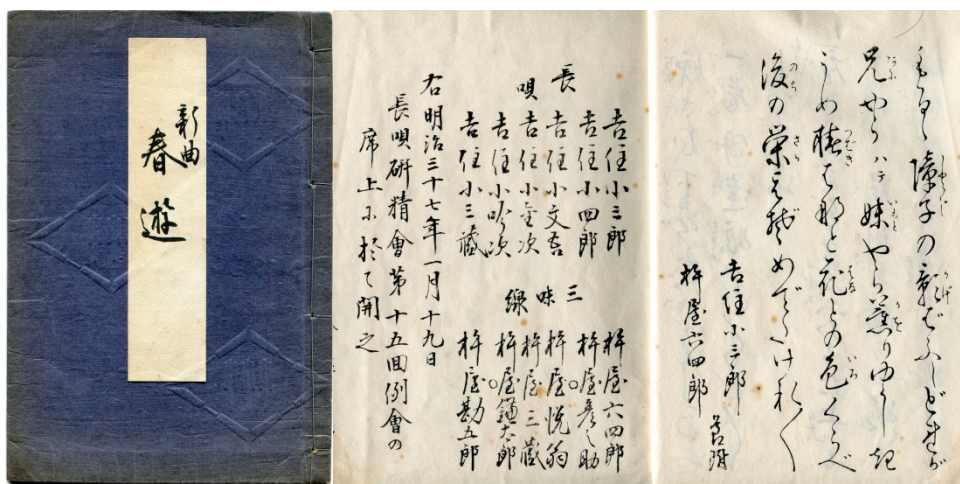 新曲
春遊
長唄
吉住小三郎
吉住小四郎
吉住小文吾
吉住小金次
吉住小吟次
吉住小三蔵
三味線
杵屋六四郎
杵屋彦之助
杵屋悦翁
杵屋三蔵
杵屋鎌太郎
杵屋勘五郎
右明治三十七年一月十九日
長唄研精會第十五回例會の
席上に於て開之
障子の
しやうじ
兄やらハテ妹やら薫りゆかし
うめ
花との色くらべ
後の栄
のち
さか
めでたけれ
吉住小三郎
杵屋六四郎